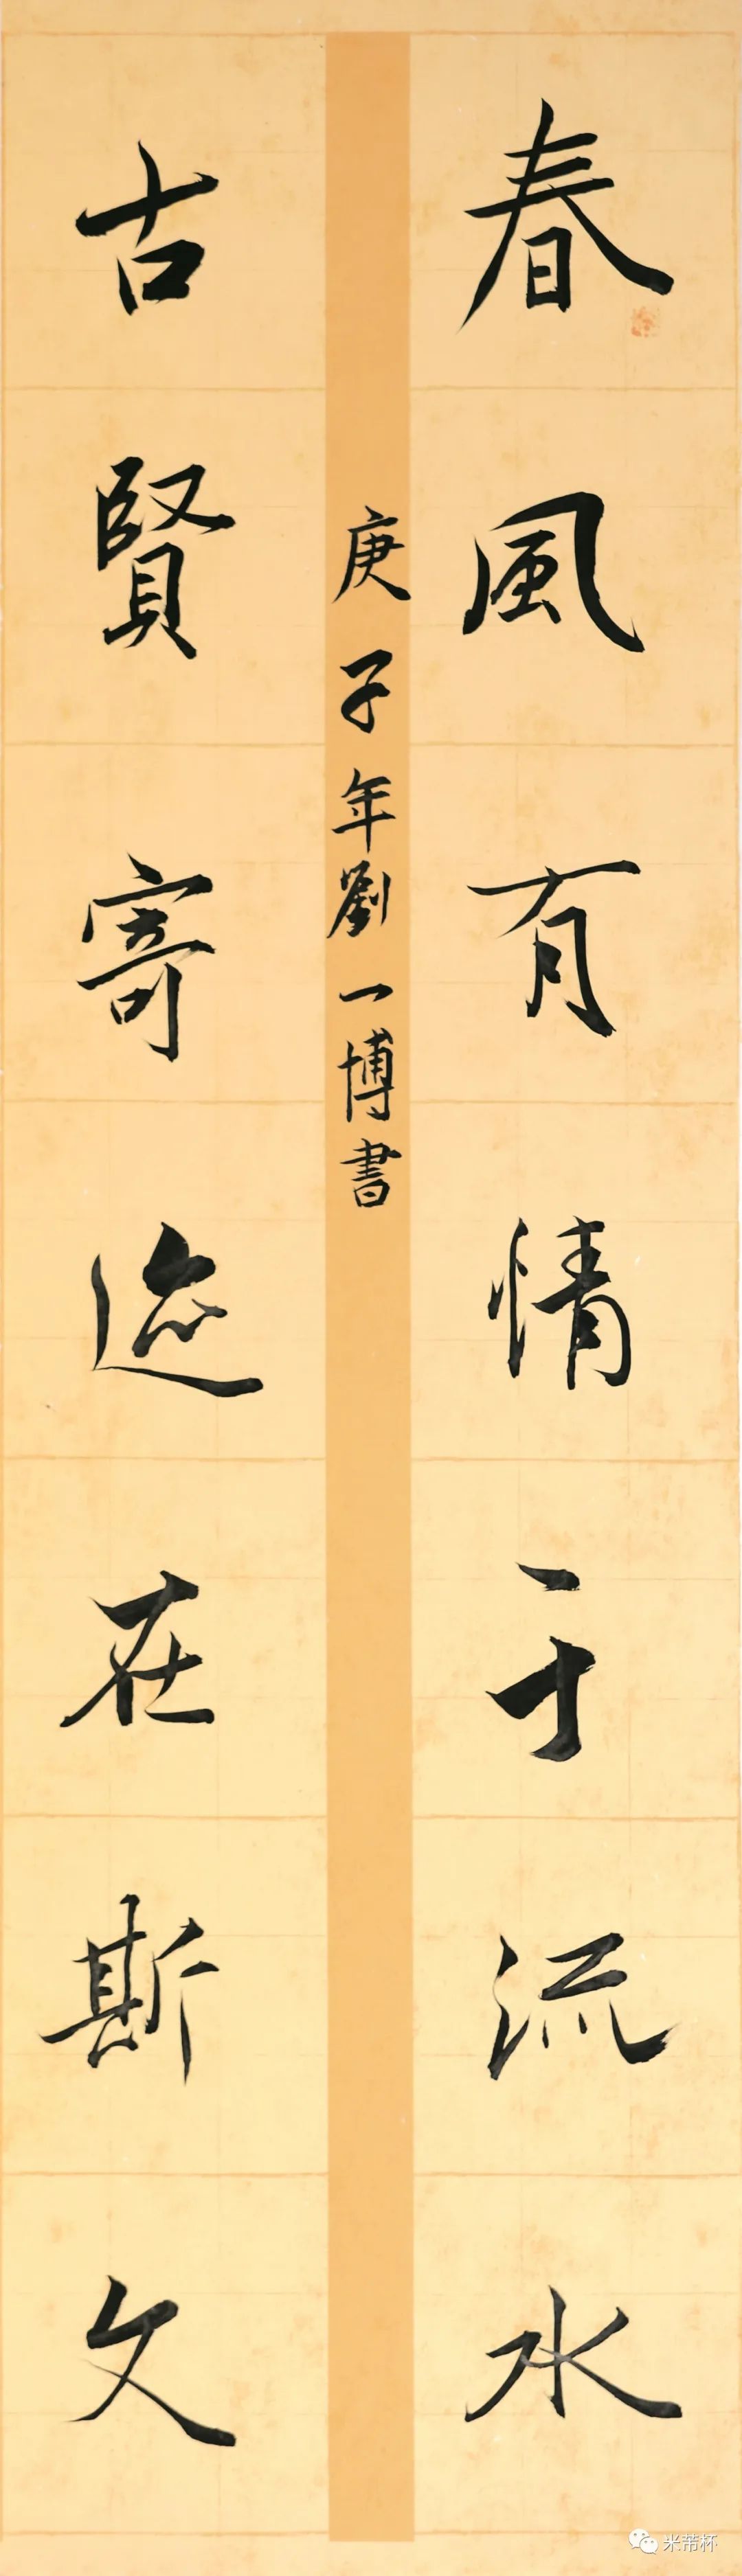 春風有情于流水
古賢寄迹在斯文
庚子年劉一博書
米芾杯